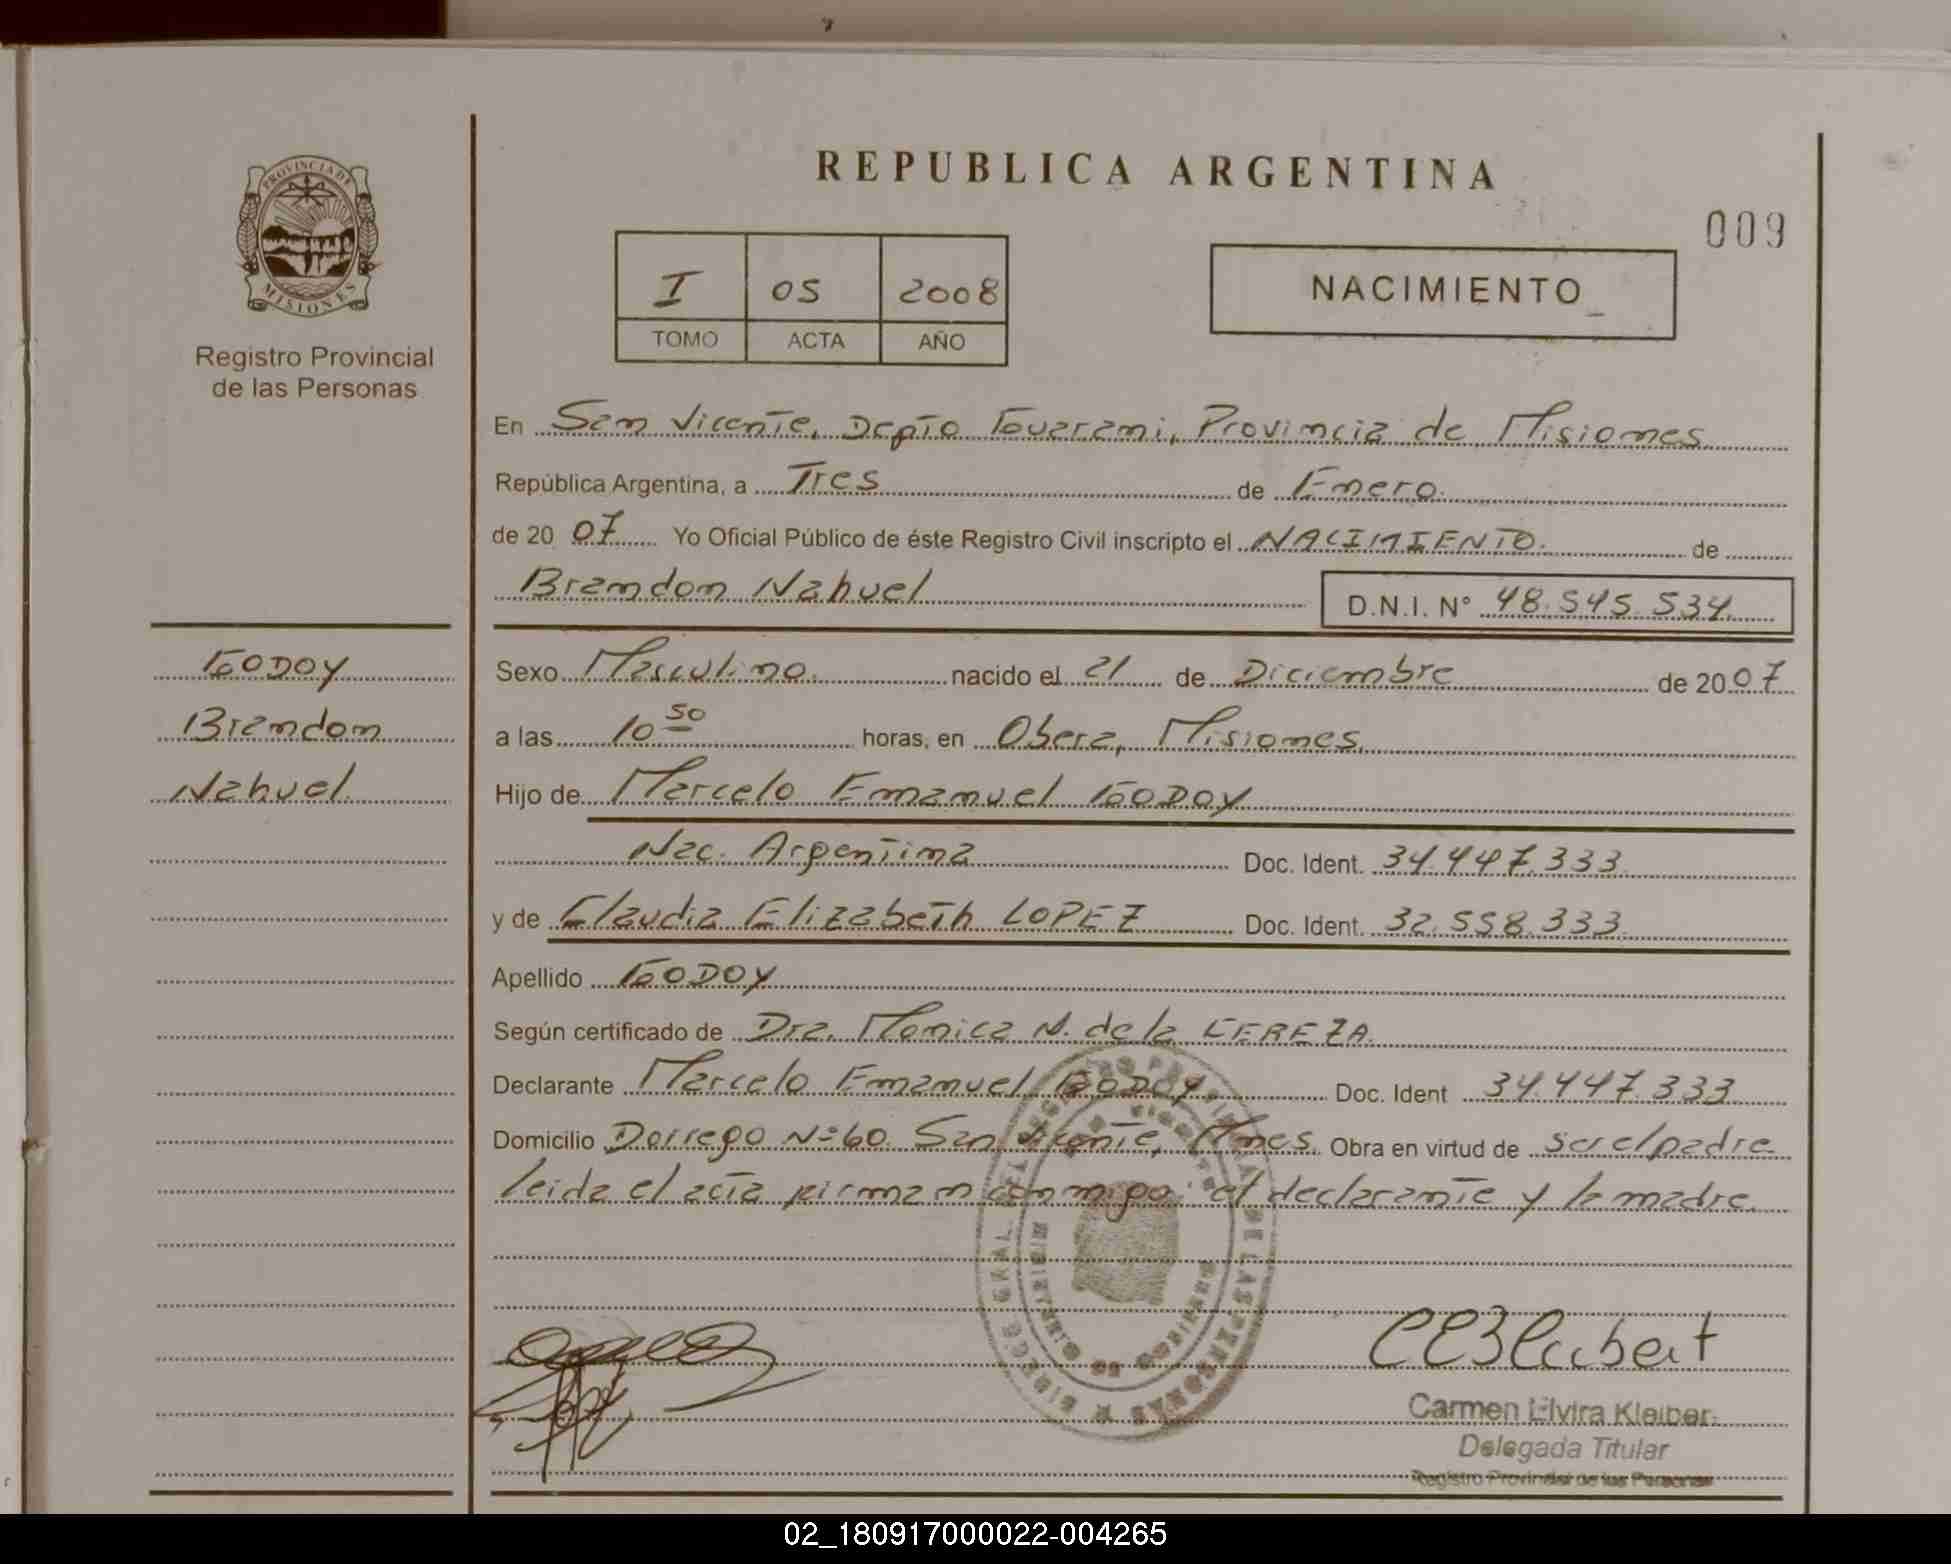 PROVINCIA DE
MISIONES
Registro Provincial
de las Personas
GODOY
Brandon
Nahuel.
REPUBLICA ARGENTINA
009
I 05 2008
TOMO ACTA AÑO
NACIMIENTO
En San Vicente, Depto Guarani, Provincia de Misiones
República Argentina, a Tres de Enero.
de 20 07 Yo Oficial Público de éste Registro Civil inscripto el NACIMIENTO. de
Brandon Nahuel
D.N.I. N° 48.545.534
Sexo Masculino. nacido el 21 de Diciembre de 20 07
a las 10 50 horas, en Obera, Misiones
Hijo de Marcelo Emanuel GODOY
Nac. Argentina Doc. Ident. 34.447.333
y de Claudia Elizabeth LOPEZ Doc. Ident. 32.558.333
Apellido GODOY
Según certificado de Dra. Monica N. de la CEREZA.
Declarante Marcelo Emanuel GODOY Doc. Ident 34.447.333
Domicilio Dorrego Nº 60. San Vicente, Mnes. Obra en virtud de ser el padre
leida el acta firman conmigo: el declarante y la madre.
Carmen Elvira Kleiber
Delegada Titular
Registro Provincial de las Personas
02_180917000022-004265